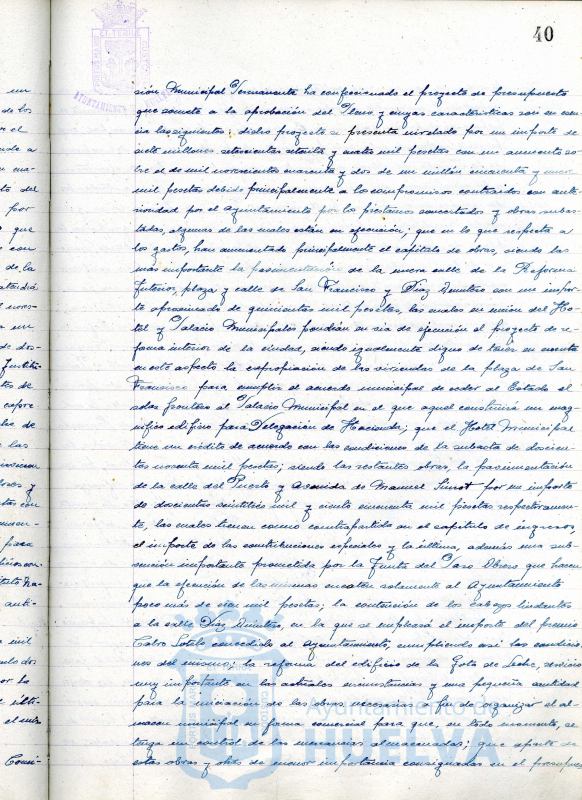 40
sión Municipal Permanente ha confeccionado el proyecto de presupuesto
que somete a la aprobación del Pleno y cuyas características son en esen
cia las siguientes: dicho proyecto se presenta nivelado por un importe de
siete millones setecientas setenta y cuatro mil pesetas con un aumento so-
bre el de mil novecientos cuarenta y dos de un millón cuarenta y
mil pesetas debido principalmente a los compromisos contraidos con ante-
rioridad por el ayuntamiento por los préstamos concertados y obras subas-
tadas, algunas de las cuales están en ejecución; que en lo que respecta a
los gastos, han aumentado principalmente el capítulo de obras, siendo las
más importante la pavimentación de la nueva calle de la Reforma
Interior, plaza y calle de San Francisco y Diaz Quintero con un impor-
te aproximado de quinientas mil pesetas, las cuales en unión del Ho-
tel y Palacio Municipales pondrán en vía de ejecución el proyecto de re-
forma interior de la ciudad, siendo igualmente digno de tener en cuenta
en este aspecto la expropiación de las viviendas de la plaza de San
Francisco para cumplir el acuerdo municipal de ceder al Estado el
solar frontero al Palacio Municipal en el que aquel construirá un mag-
nífico edificio para Delegación de Hacienda; que el Hotel Municipal
tiene un crédito de acuerdo con las condiciones de la subasta de doscien-
tas noventa mil pesetas; siendo las restantes obras, la pavimentación
de la calle del Puerto y Avenida de Manuel Siurot por un importe
de doscientas veintitrés mil y ciento cincuenta mil pesetas respectivamen-
te, las cuales tienen como contrapartida en el capítulo de ingresos,
el importe de las contribuciones especiales y la última, además una sub-
vención importante prometida por la Junta del Paro Obrero que hacen
que la ejecución de las mismas cuesten solamente al Ayuntamiento
poco más de cien mil pesetas; la contención de los cabezos lindantes
a la calle Diaz Quintero, en la que se empleará el importe del premio
Calvo Sotelo concedido al Ayuntamiento, cumpliendo así las condicio-
nes del mismo; la reforma del edificio de la Gota de Leche, servicio
muy importante en las actuales circunstancias y una pequeña cantidad
para la iniciación de las obras necesarias a fin de organizar el al-
macen municipal en forma comercial para que, en todo momento, se
tenga un control de las mercancias almacenadas; que aparte de
estas obras y otras de menor importancia consignadas en el presupues
Ayuntamiento de
HUELVA